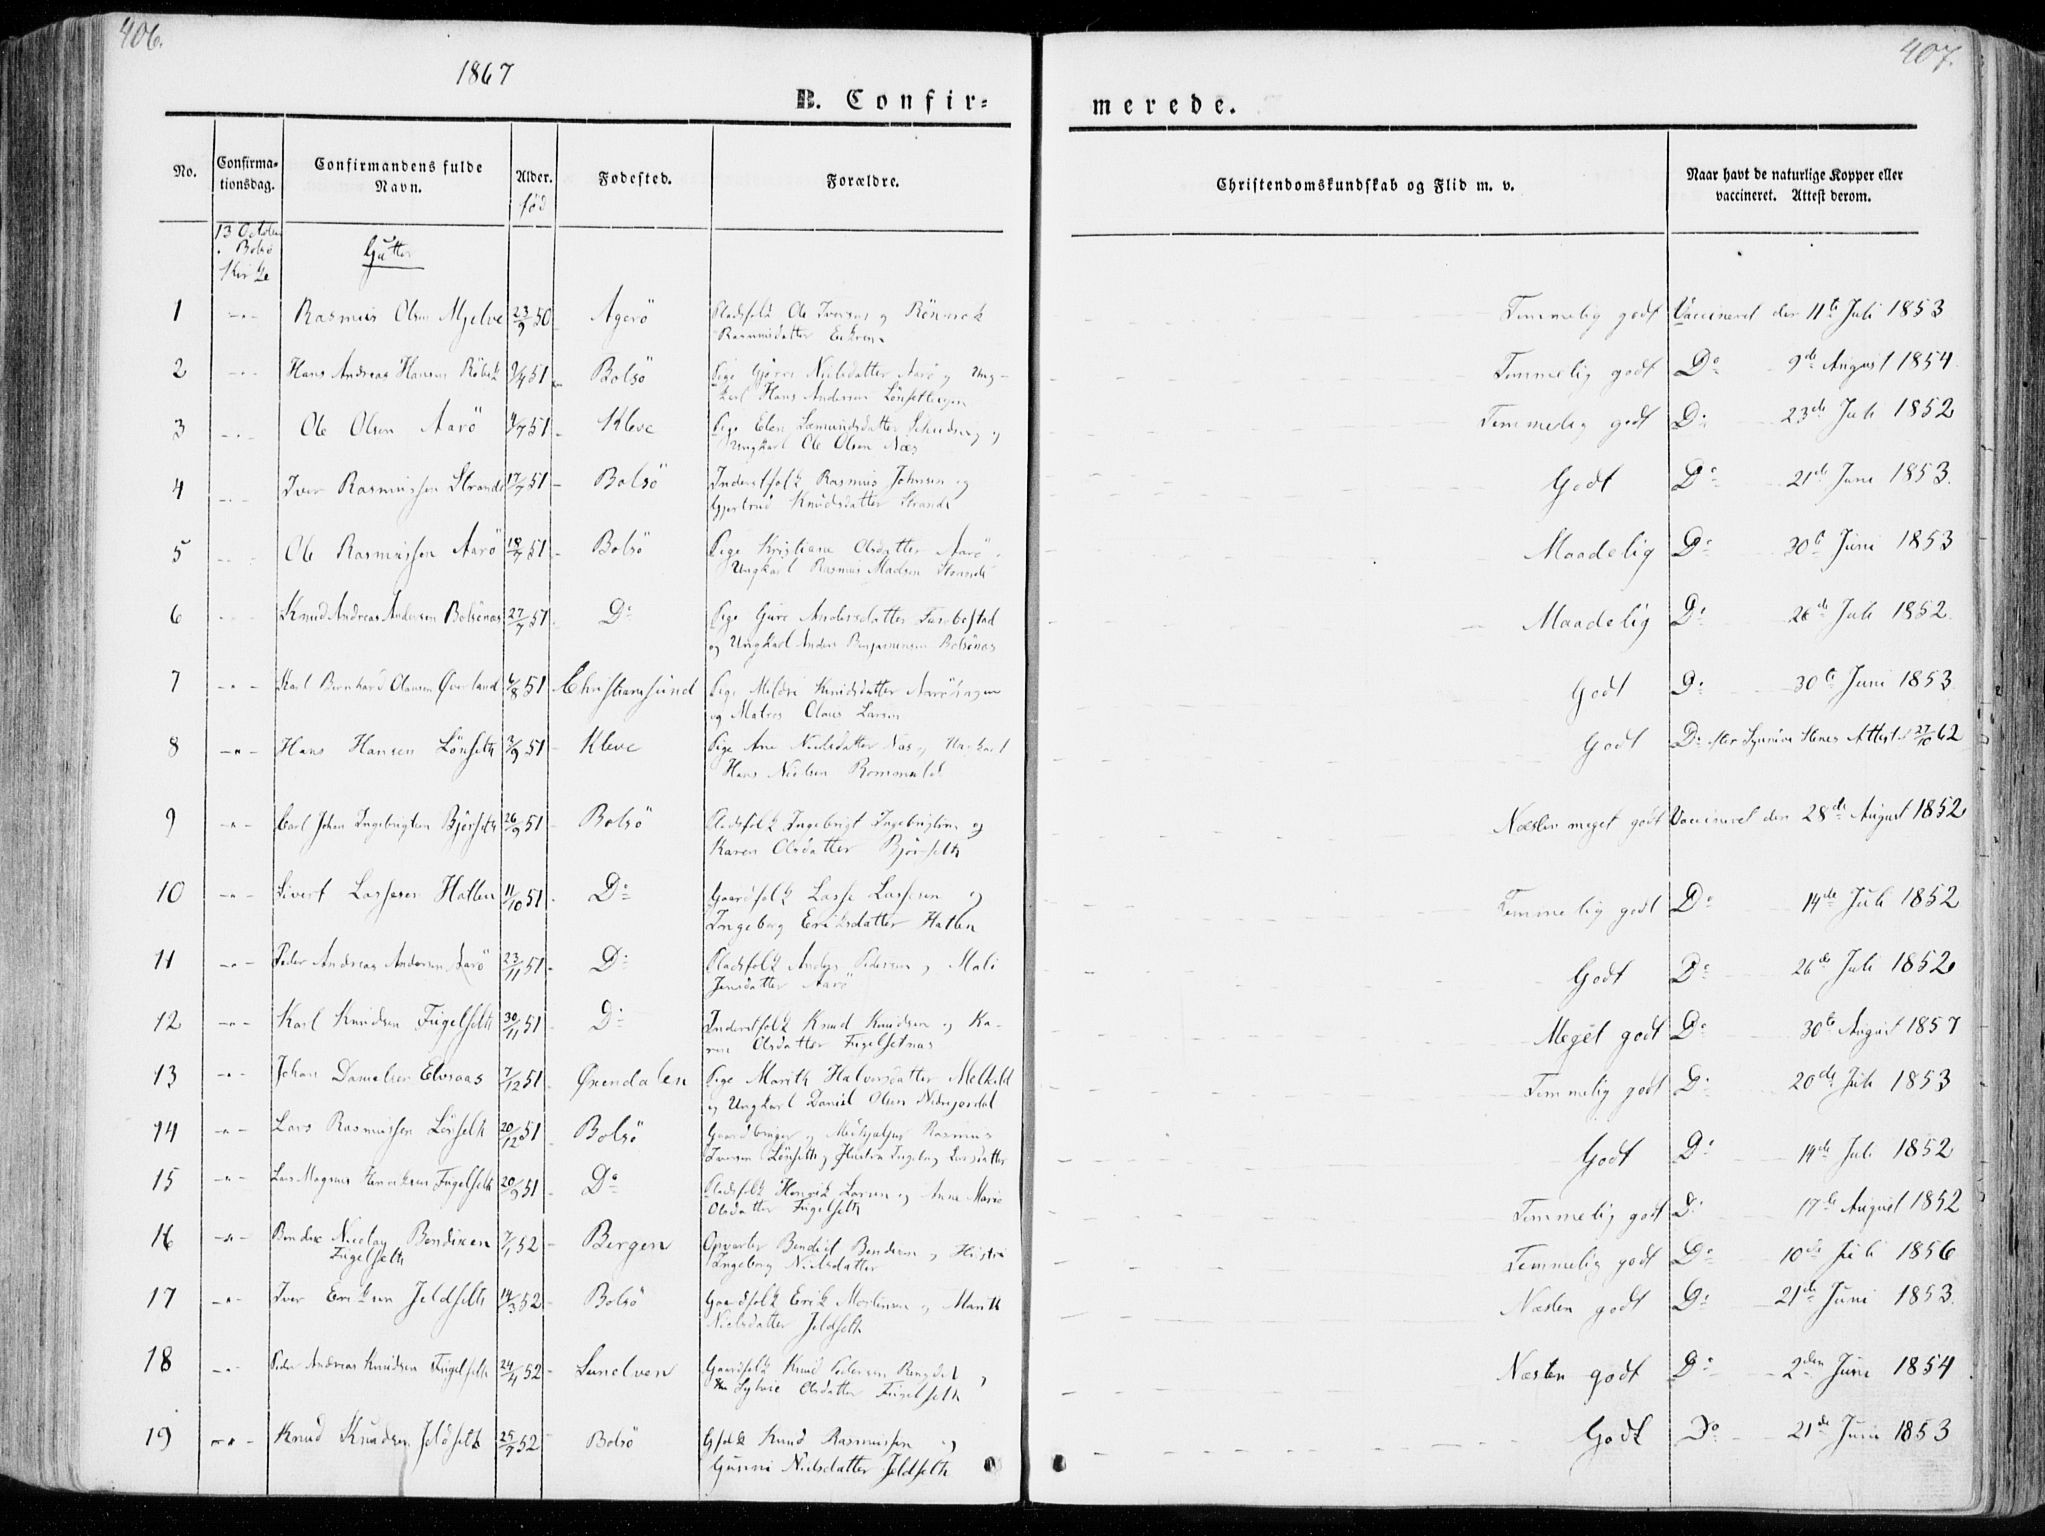 406.
1867
B. Confir=
No.
Confirma=
tionsdag.
Confirmandens fulde
Navn.
Alder.
født
Fødested.
Forældre.
13 October
Bolsø
Kirke
Gutter
1 -"- Rasmus Olsen Mjelve 23/9 50 Agerö Pladsfolk Ole Iversen og
Rasmusdatter
2 -"- Hans Andreas Hansen 51 Bolsö Pige Nielsdatter Aarö og Ung-
karl Hans Andersen
3 -"- Ole Olsen Aarö 51 Kleve Pige Elen og
Ungkarl Ole Olsen Næs
4 -"- Iver Rasmussen Strande 17/7 51 Bolsö Inderstfolk Rasmus Johnsen og
Gjertrud Knudsdatter Strande
5 -"- Ole Rasmussen Aarö 18/7 51 Bolsö Pige Kristiane Olsdatter Aarö
Ungkarl Rasmus Madsen Strande
6 -"- Knud Andreas Andersen Bolsönæs 27/7 51 Do Pige Guro Andersdatter
og Ungkarl Anders Benjaminsen Bolsönæs
7 -"- Karl Bernhard Olausen Øverland 6/8 51 Christiansund Pige Mildri Knudsdatter
og Matros Olaus Larsen
8 -"- Hans Hansen Lönseth 3/9 51 Kleve Pige Ane Nielsdatter Næs og Ungkarl
Hans Nielsen
9 -"- Carl Johan Ingebrigtsen Bjørseth 26/9 51 Bolsö Pladsfolk Ingebrigt Ingebrigtsen og
Karen Olsdatter Bjørseth
10 -"- Sivert Lassesen Hatlen 11/10 51 Do Gaardfolk Lasse Lassesen og
Ingeborg Eriksdatter Hatlen
11 -"- Peder Andreas Andersen Aarö 23/11 51 Do Pladsfolk Anders Pedersen og Mali
Jensdatter Aarö
12 -"- Karl Knudsen Fugelseth 30/11 51 Do Inderstfolk Knud Knudsen og Ka-
ren Olsdatter Fugelsetnæs
13 -"- Johan Danielsen Elvsaas 7/12 51 Øxendalen Pige Marith Halvorsdatter
og Ungkarl Daniel Olsen
14 -"- Lars Rasmussen Lönseth 20/12 51 Bolsö Gaardbruger og Rasmus
Iversen Lönseth og Hustru Ingeborg Larsdatter
15 -"- Lars Magnus Henriksen Fugelseth 20/9 51 Do Pladsfolk Henrik Larsen og Anne Marie
Olsdatter Fugelseth
16 -"- Bendix Nicolay Bendixen 7/1 52 Bergen Opvarter Bendict Bendixen og Hustru
Fugelseth Ingeborg Nielsdatter
17 -"- Iver Eriksen Jeldseth 14/3 52 Bolsö Gaardfolk Erik Mortensen og Marith
Nielsdatter Jeldseth
18 -"- Peder Andreas Knudsen Fugelseth 24/4 52 Sunelven Gaardfolk Knud Pedersen og
Sylvie Olsdatter Fugelseth
19 -"- Knud Knudsen Jeldseth 25/7 52 Bolsö Gfolk Knud Rasmussen og
Gunni Nielsdatter Jeldseth
407.
merede.
Christendomskundskab og Flid m. v.
Naar havt de naturlige Kopper eller
vaccineret. Attest derom.
Temmelig godt Vaccineret den 11te Juli 1853
Temmelig godt Do 9de August 1854
Temmelig godt Do 23de Juli 1852
Godt Do 21de Juni 1853.
Maadelig Do 30te Juni 1853
Maadelig Do 26de Juli 1852.
Godt Do 30te Juni 1853
Godt Do Attest 27/10 62
Næsten meget godt Vaccineret den 28de August 1852
Temmelig godt Do 14de Juli 1852
Godt Do 26de Juli 1852
Meget godt Do 30te August 1857
Temmelig godt Do 20de Juli 1853
Godt Do 14de Juli 1852
Temmelig godt Do 17de August 1852
Temmelig godt Do 10de Juli 1856
Næsten godt Do 21de Juni 1853.
Næsten godt Do 2den Juni 1854
Godt Do 21de Juni 1853